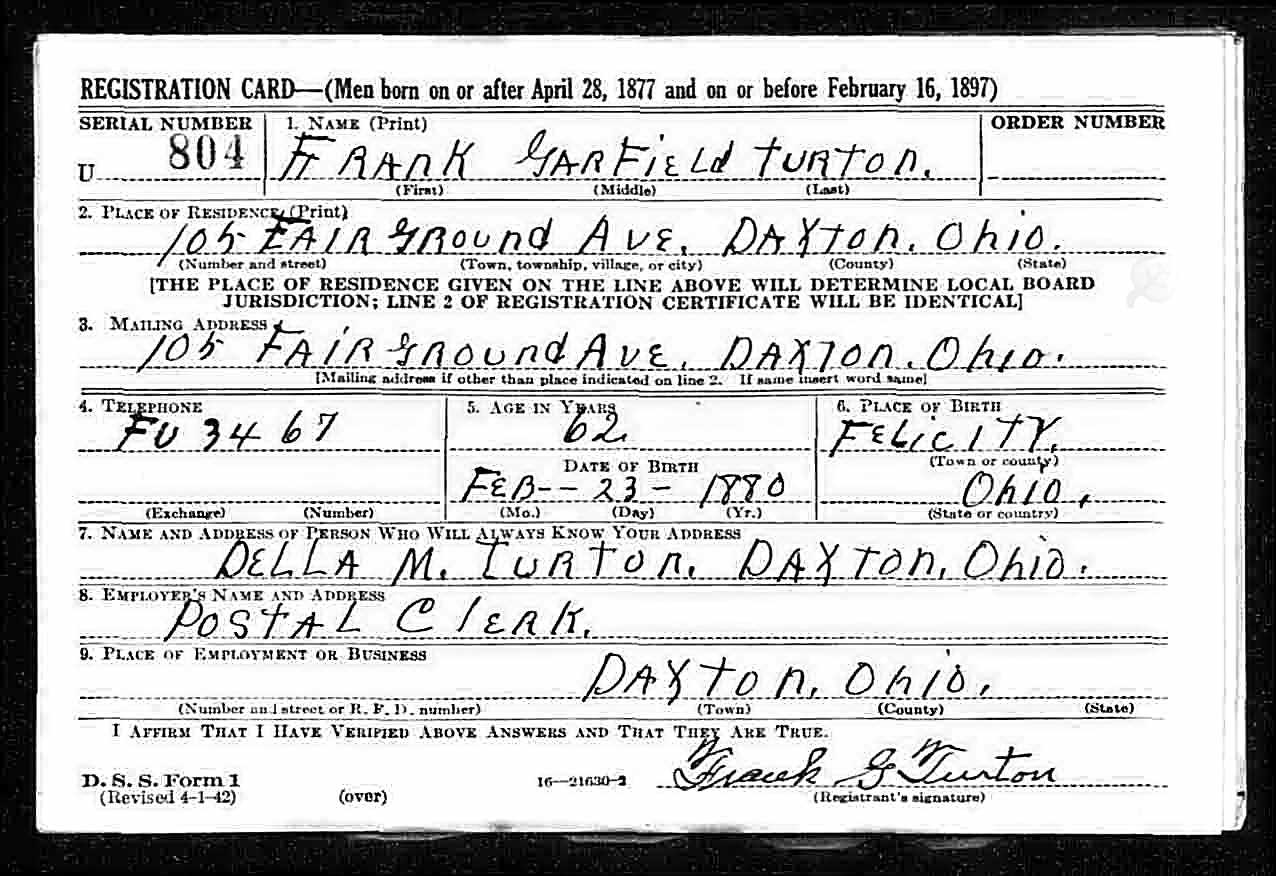 REGISTRATION CARD—(Men born on or after April 28, 1877 and on or before February 16, 1897)
SERIAL NUMBER 1. NAME (Print) ORDER NUMBER
U 804 FRANK GARFIELD TURTON.
(First) (Middle) (Last)
2. PLACE OF RESIDENCE (Print)
105 FAIRGROUND AVE. DAYTON. OHIO.
(Number and street) (Town, township, village, or city) (County) (State)
[THE PLACE OF RESIDENCE GIVEN ON THE LINE ABOVE WILL DETERMINE LOCAL BOARD
JURISDICTION; LINE 2 OF REGISTRATION CERTIFICATE WILL BE IDENTICAL]
3. MAILING ADDRESS
105 FAIRGROUND AVE. DAYTON. OHIO.
[Mailing address if other than place indicated on line 2. If same insert word same]
4. TELEPHONE 5. AGE IN YEARS 6. PLACE OF BIRTH
FU 3467 62 FELICITY.
(Town or county)
DATE OF BIRTH
FEB-- 23- 1880 OHIO.
(Exchange) (Number) (Mo.) (Day) (Yr.) (State or country)
7. NAME AND ADDRESS OF PERSON WHO WILL ALWAYS KNOW YOUR ADDRESS
DELLA M. TURTON. DAYTON. OHIO.
8. EMPLOYER'S NAME AND ADDRESS
POSTAL CLERK.
9. PLACE OF EMPLOYMENT OR BUSINESS
DAYTON. OHIO.
(Number and street or R. F. D. number) (Town) (County) (State)
I AFFIRM THAT I HAVE VERIFIED ABOVE ANSWERS AND THAT THEY ARE TRUE.
Frank G Turton
D. S. S. Form 1 16—21630-2
(Revised 4-1-42) (over) (Registrant's signature)